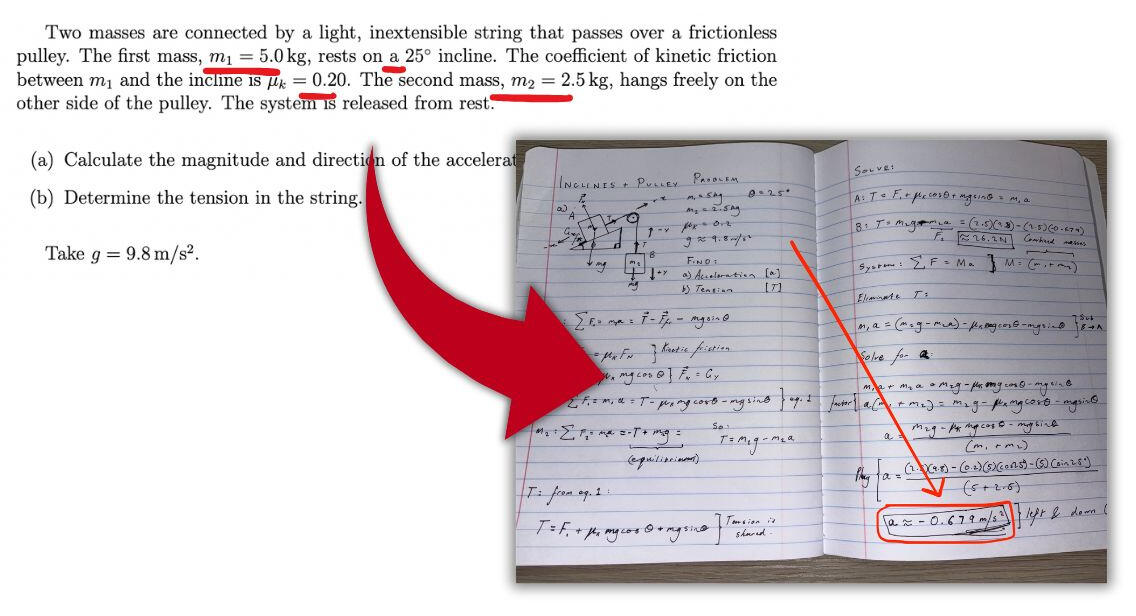 Two masses are connected by a light, inextensible string that passes over a frictionless
pulley. The first mass, m₁ = 5.0 kg, rests on a 25° incline. The coefficient of kinetic friction
between m₁ and the incline is μₖ = 0.20. The second mass, m₂ = 2.5 kg, hangs freely on the
other side of the pulley. The system is released from rest.
(a) Calculate the magnitude and direction of the accelerat
(b) Determine the tension in the string.
Take g = 9.8 m/s².
INCLINES + PULLEY PROBLEM
a)
m₁ = 5kg θ = 25°
m₂ = 2.5kg
μₖ = 0.2
g ≈ 9.8 m/s²
FIND:
a) Acceleration [a]
b) Tension [T]
A
B
T
+x
+y
m₂
mg
mg
ΣFₓ = ma = T - Fμ - mgsinθ
= μₖ Fɴ } Kinetic friction
μₖ mg cos θ } Fɴ = Gʏ
ΣF₁ = m₁a = T - μₖmgcosθ - mgsinθ } eq. 1
m₂: ΣF₂ = ma = -T + m₂g =
(equilibrium)
So:
T = m₂g - m₂a
T: from eq. 1:
T = F₁ + μₖ mg cos θ + mg sinθ ] Tension is
shared.
SOLVE:
A: T = F₁ + μₖcosθ + mgsinθ = m₁a
B: T = m₂g - m₂a = (2.5)(9.8) - (2.5)(-0.679)
F₂ ≈ 26.2N Combined masses
System: ΣF = Ma } M = (m₁ + m₂)
Eliminate T:
m₁a = (m₂g - m₂a) - μₖmgcosθ - mgsinθ } Sub
B→A
Solve for a:
m₁a + m₂a = m₂g - μₖmgcosθ - mgsinθ
factor { a(m₁ + m₂) = m₂g - μₖmgcosθ - mgsinθ
a = m₂g - μₖmgcosθ - mgsinθ
(m₁ + m₂)
Plug { a = (2.5)(9.8) - (0.2)(5)(cos25) - (5)(sin25°)
(5 + 2.5)
a ≈ -0.679 m/s² } left & down (